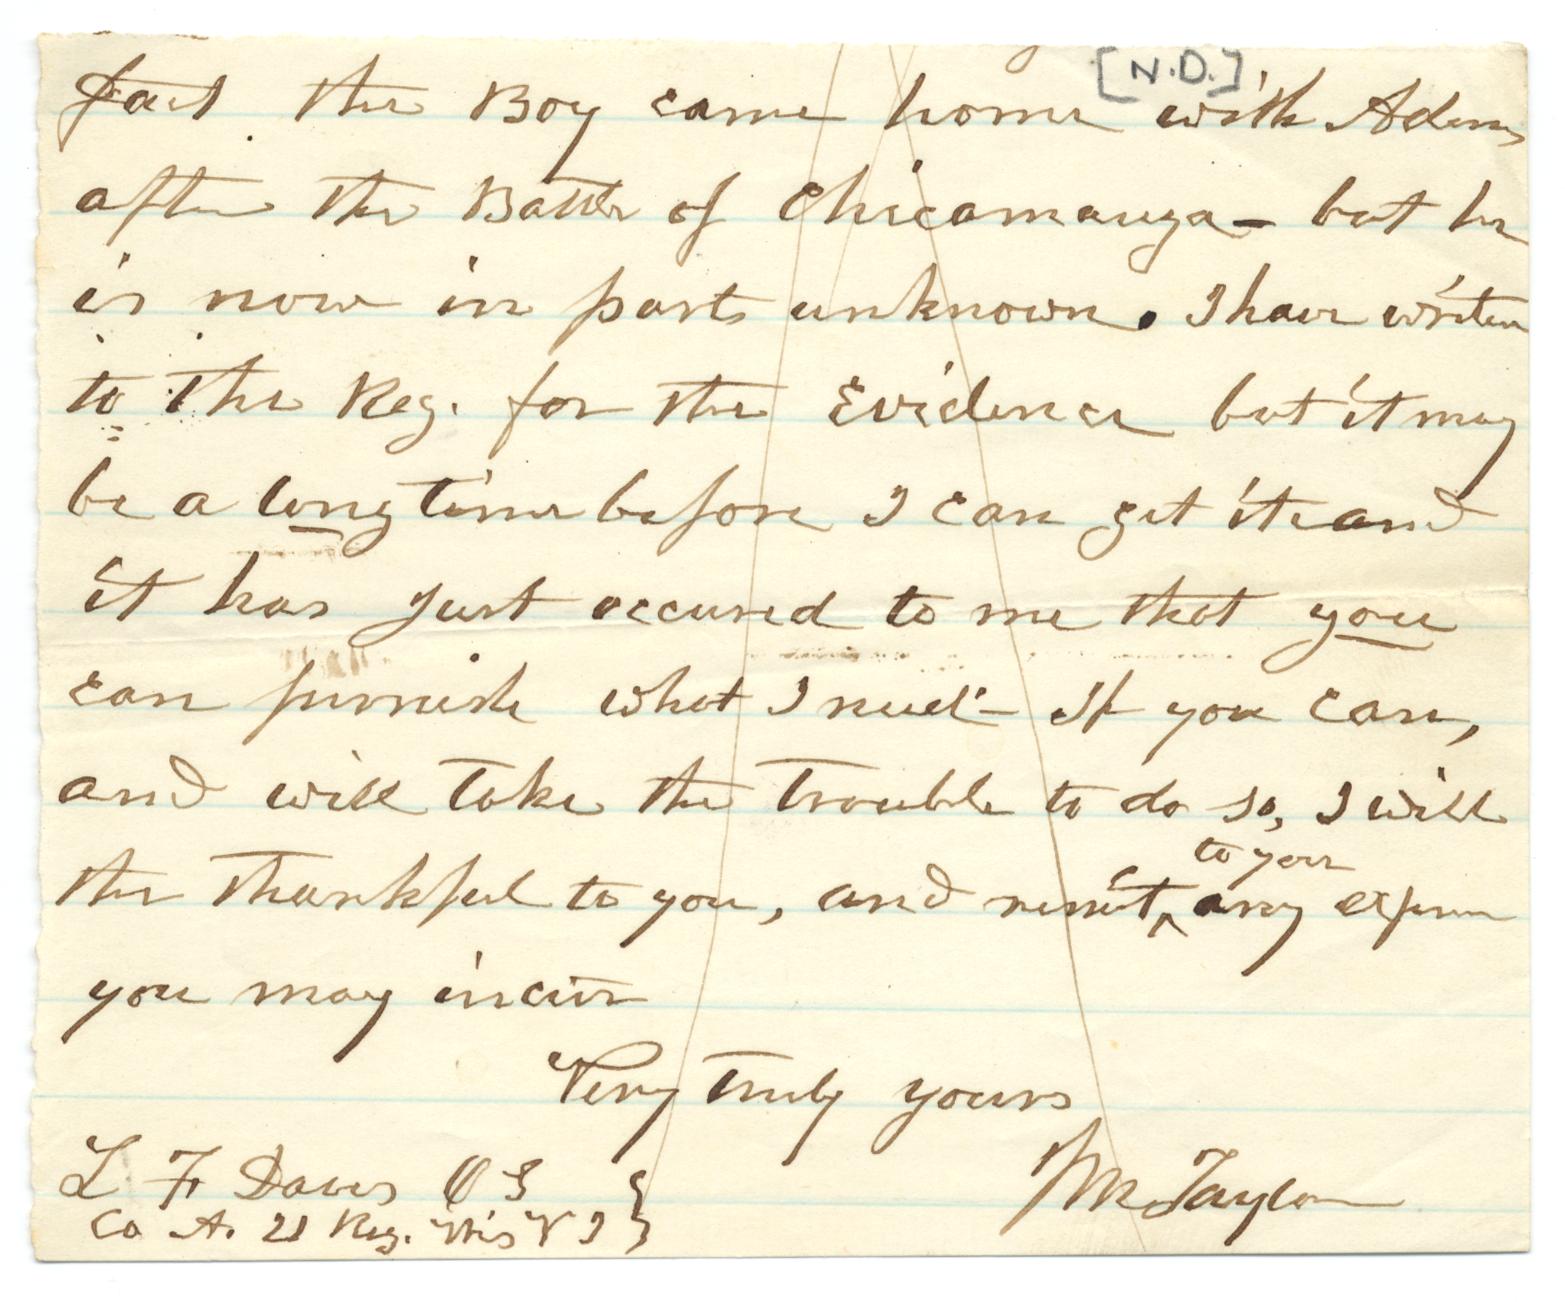 [N.D.]
fact the Boy came home with Adams
after the Battle of Chicamauga - but he
is now in parts unknown. I have written
to the Reg. for the Evidence but it may
be a long time before I can get it and
it has just occured to me that you
can furnish what I need - If you can,
and will take the trouble to do so, I will
the thankful to you, and remit ^ to you any expense
you may incur
Very truly yours
Wm Taylor
L F Davis O S }
Co A. 21 Reg. Wis V I }